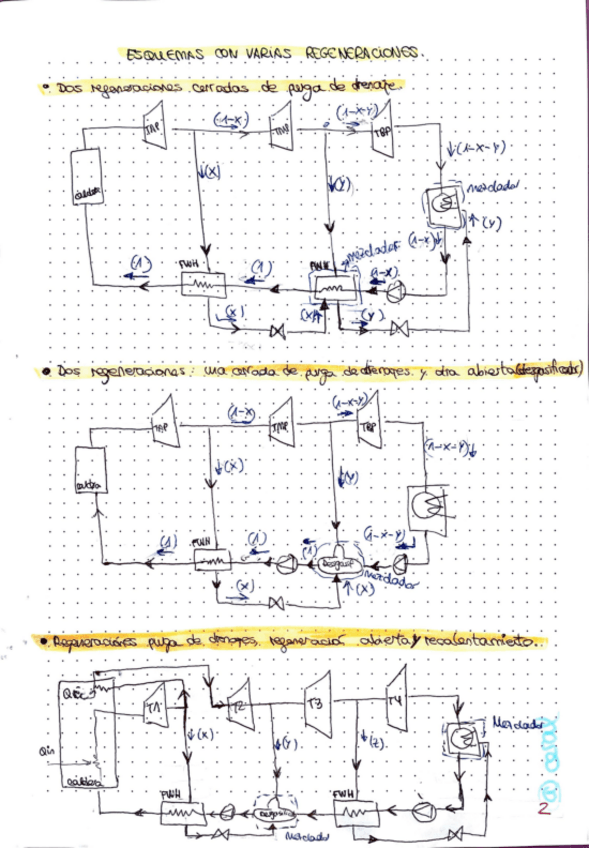 ESQUEMAS CON VARIAS REGENERACIONES.
• Dos regeneraciones cerradas de purga de drenaje.
(1-x) (1-x-y)
TAP TMP TBP
↓(1-x-y)
↓(x) ↓(y)
caldera
Mezclador
↑(y)
(1-x)↓
mezclador
(1) FWH (1) FWH (1-x)
(x) (x)↑ (y)
• Dos regeneraciones: una cerrada de purga de drenajes y otra abierta (desgasificador)
(1-x) (1-x-y)
TAP TMP TBP
(1-x-y)↓
↓(x) ↓(y)
caldera
(1) FWH (1) (1) (1-x-y)
Desgasif
mezclador
(x) ↑(x)
• Regeneraciones purga de drenajes, regeneración abierta y recalentamiento.
T1 T2 T3 T4
Mezclador
↓(x) ↓(y) ↓(z)
Qin
caldera
FWH FWH
Mezclador
2